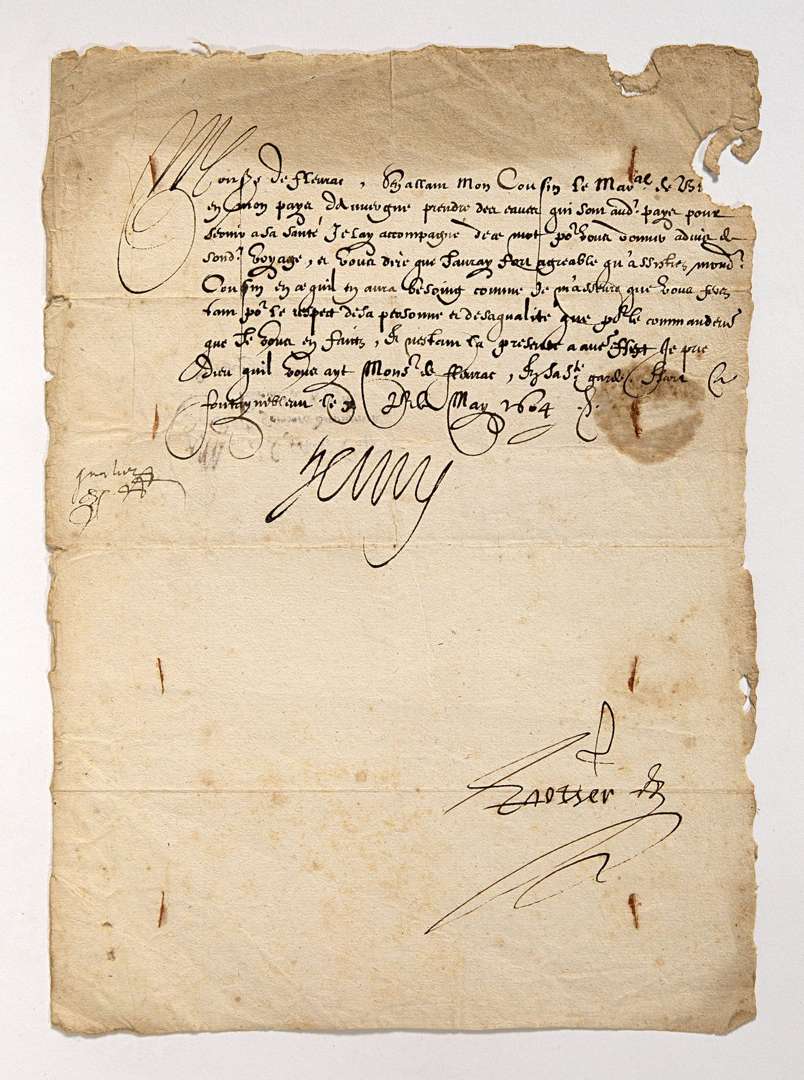 Monsr de fleurac, Sen allant Mon Cousin le Maral de
en mon pays dauvergne prendre des eaues qui sont audt pays pour
servir a sa santé Je lay accompagné de ce mot por vous donner advis de
sondt voyage, et vous dire que Jauray fort agreable qu'assistiez mondt
Cousin en ce quil en aura besoing comme Je m'asseure que vous ferez
tant por le respect de sa personne et de sa qualité que por le commandemt
que Je vous en faictz, Et n'estant la presente a autre effect Je prie
dieu quil vous ayt Monsr de fleurac, En sa ste garde. Escrit a
fontaynebleau le Jor de May 1604
Henry